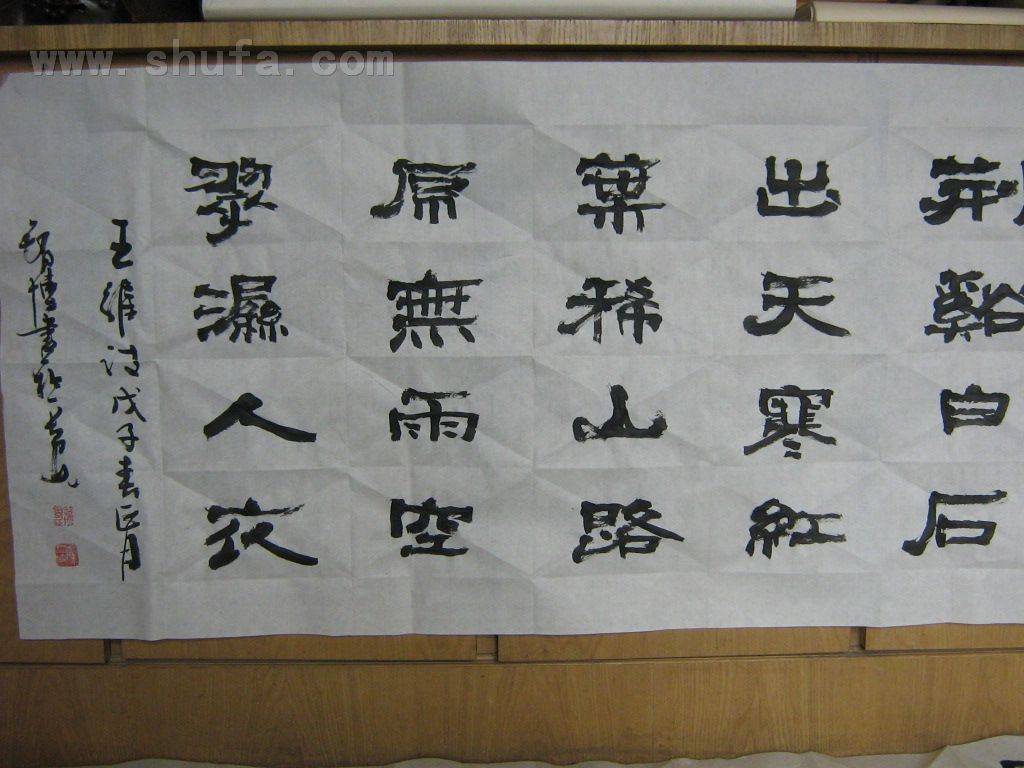 www.shufa.com
荊谿白石
出天寒紅
葉稀山路
原無雨空
翠濕人衣
王維詩戊子春正月
書於